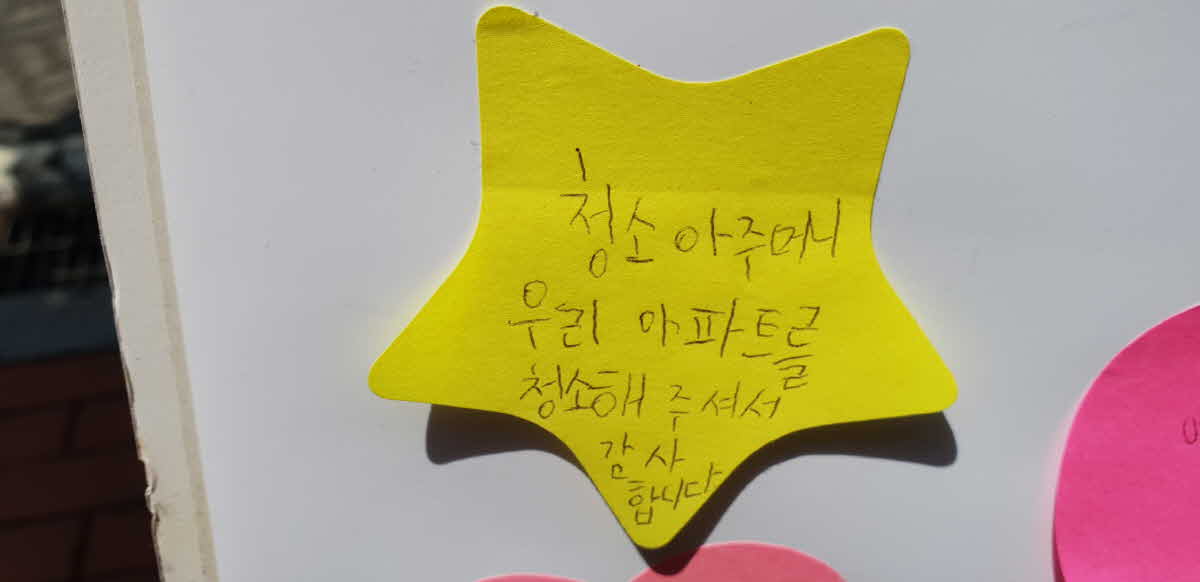 청소 아주머니
우리 아파트를
청소해 주셔서
감사
합니다